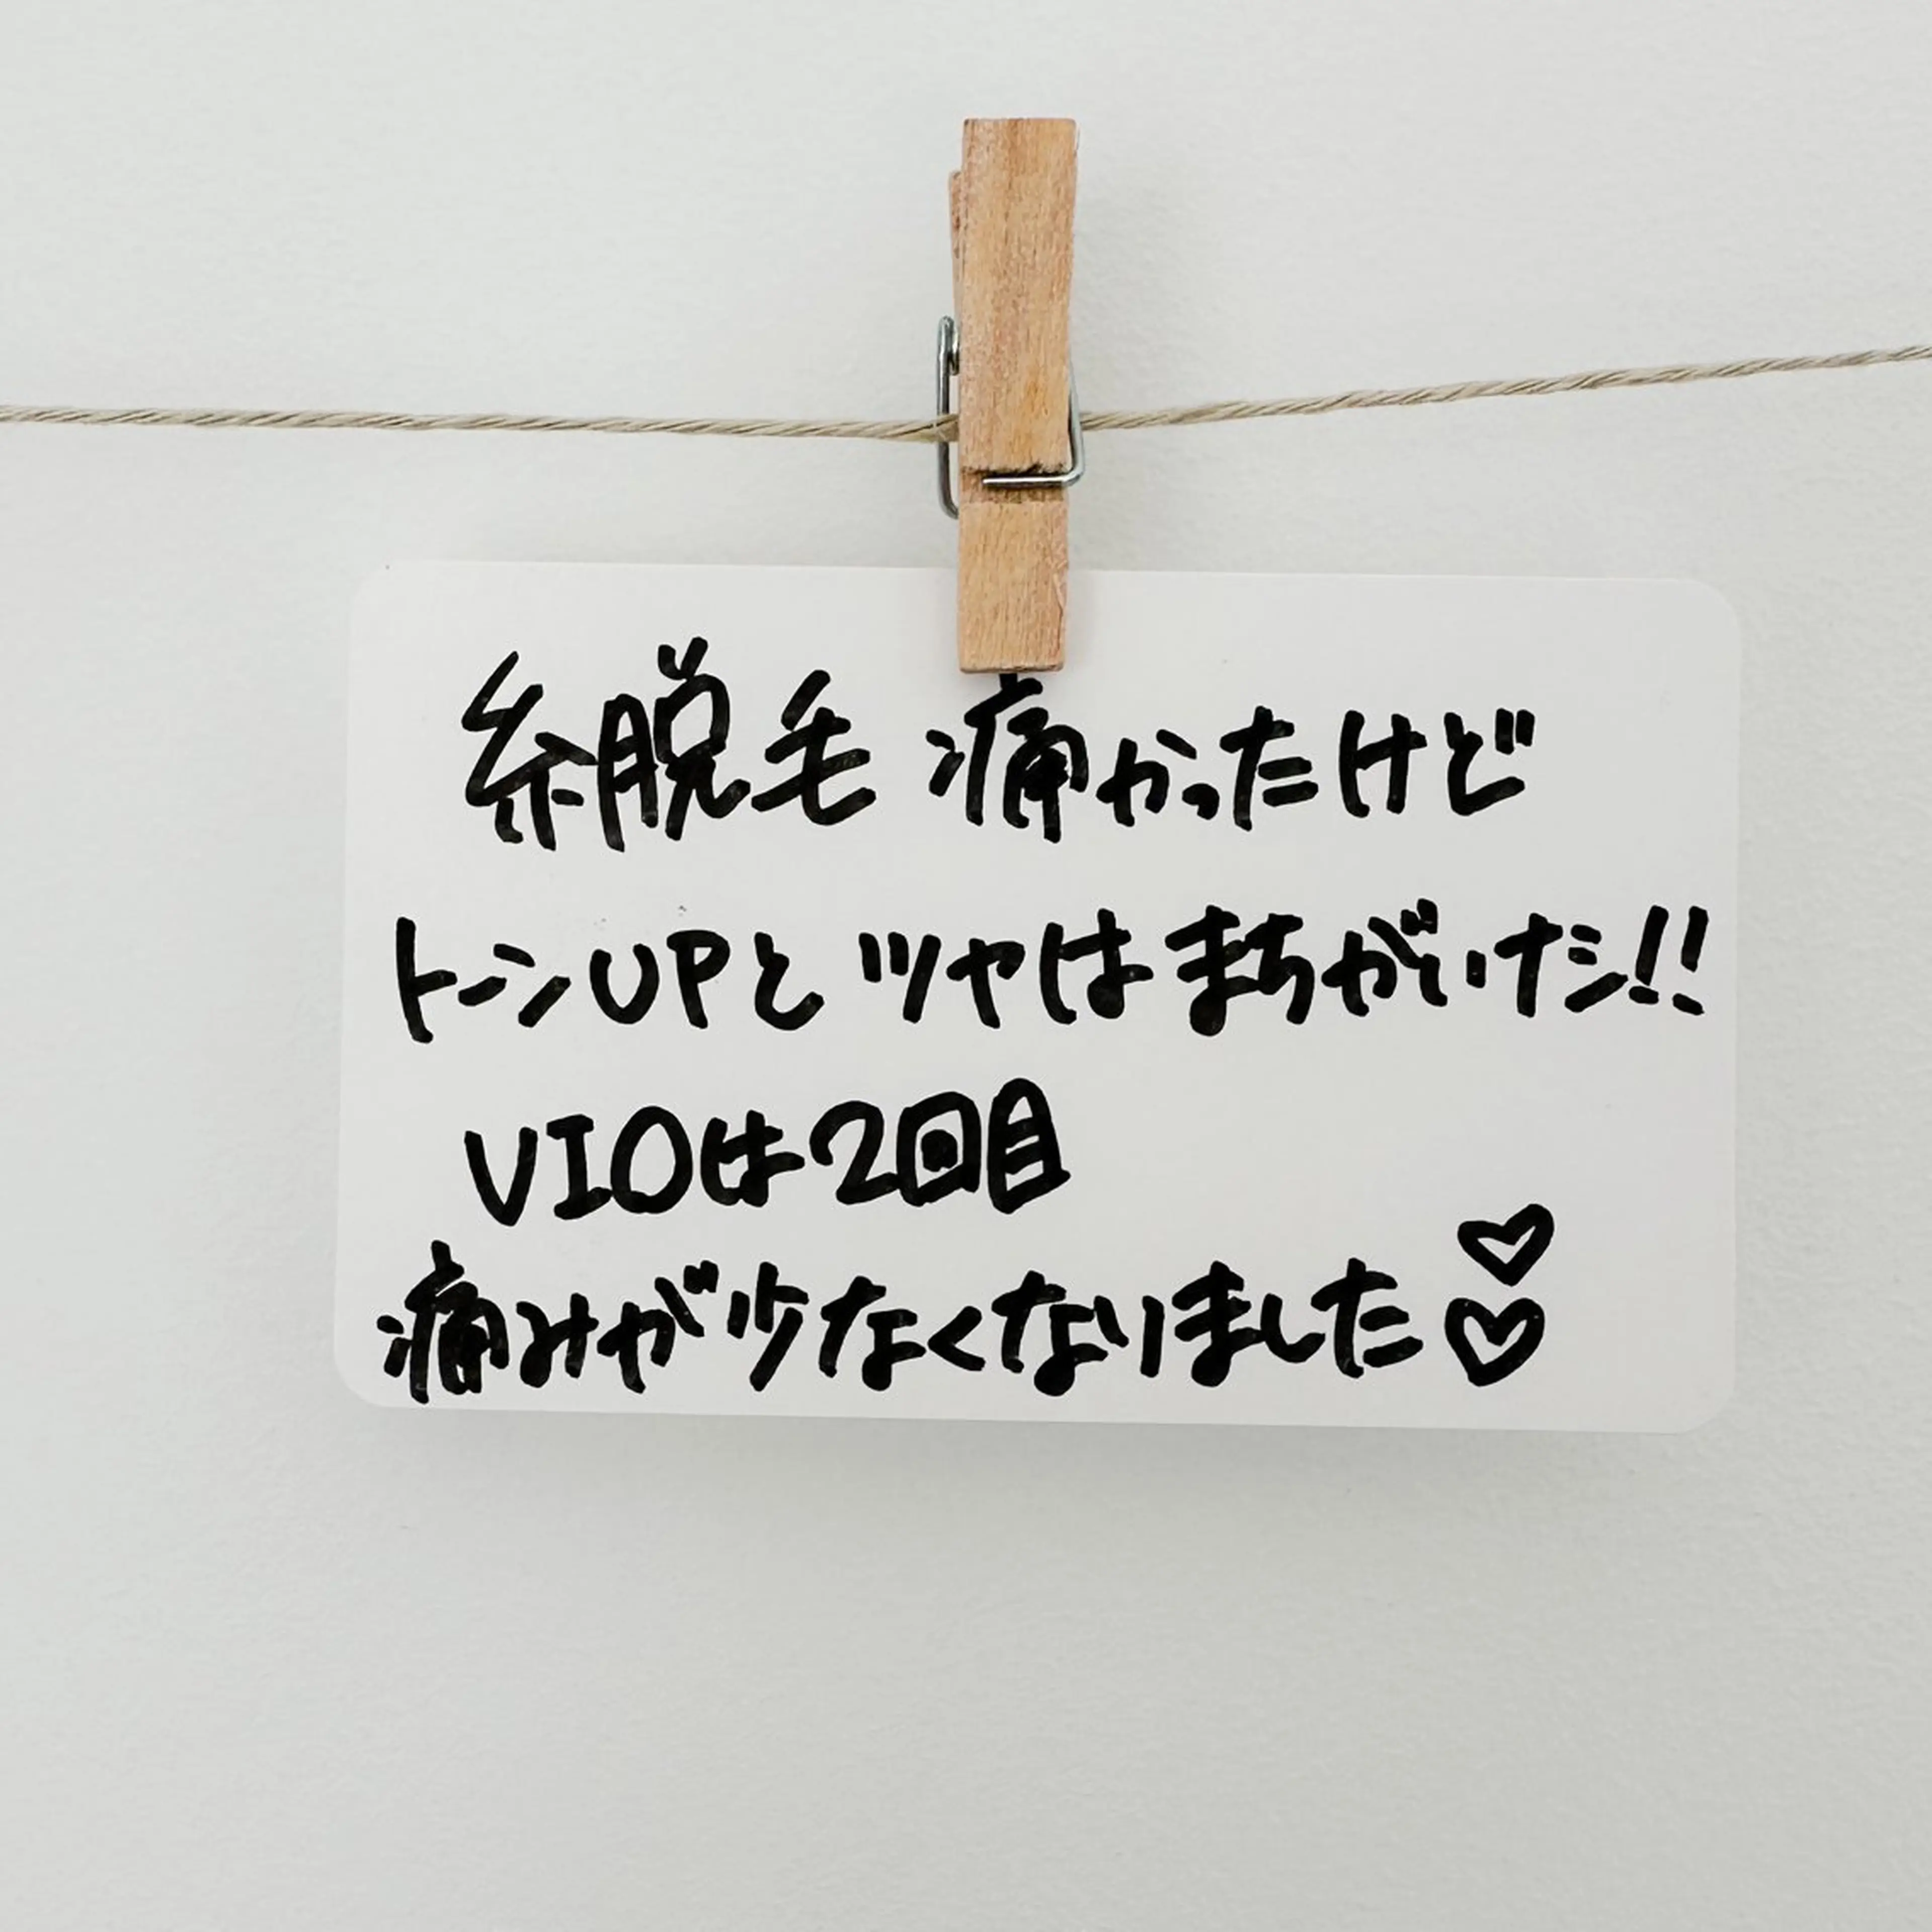 糸脱毛 痛かったけど
トーンUPと ツヤは まちがいナシ!!
VIOは2回目
痛みが少なくなりました♡♡